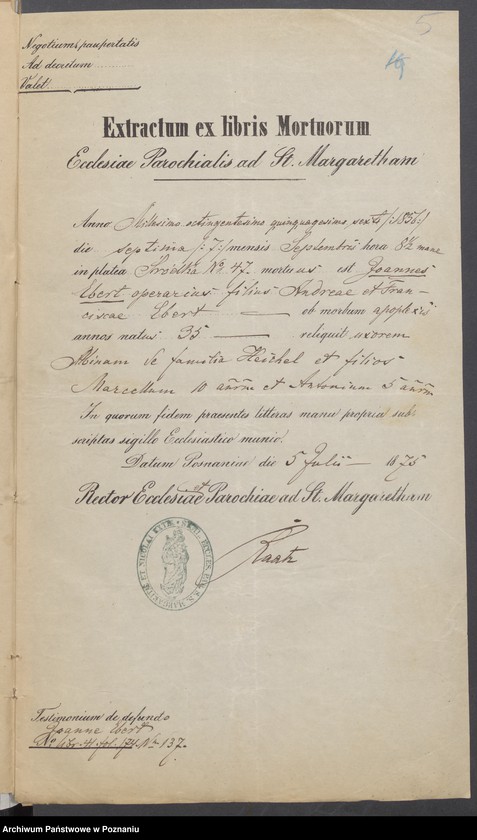 5
19
Negotium paupertatis
Ad decretum
Valet
Extractum ex libris Mortuorum
Ecclesiae Parochialis ad St. Margaretham
Anno Millesimo octingentesimo quinquagesimo sexto /:1856:/
die septima /:7:/ mensis Septembris hora 8½ mane
in platea Srodka No. 47. mortuus est Joannes
Ebert operarius filius Andreae et Fran-
ciscae Ebert — ob morbum apoplexis
annos natus 35 — reliquit uxorem
de familia Heichel et filios
Marcellum 10 annm et Antonium 5 annm
In quorum fidem praesentes litteras manu propria sub-
scriptas sigillo Ecclesiastico munio.
Datum Posnaniae die 5 Julii — 1875
Rector Ecclesiae et Parochiae ad St. Margaretham
Testimonium de defuncto
Joanne Ebert
No. 137.
Archiwum Państwowe w Poznaniu